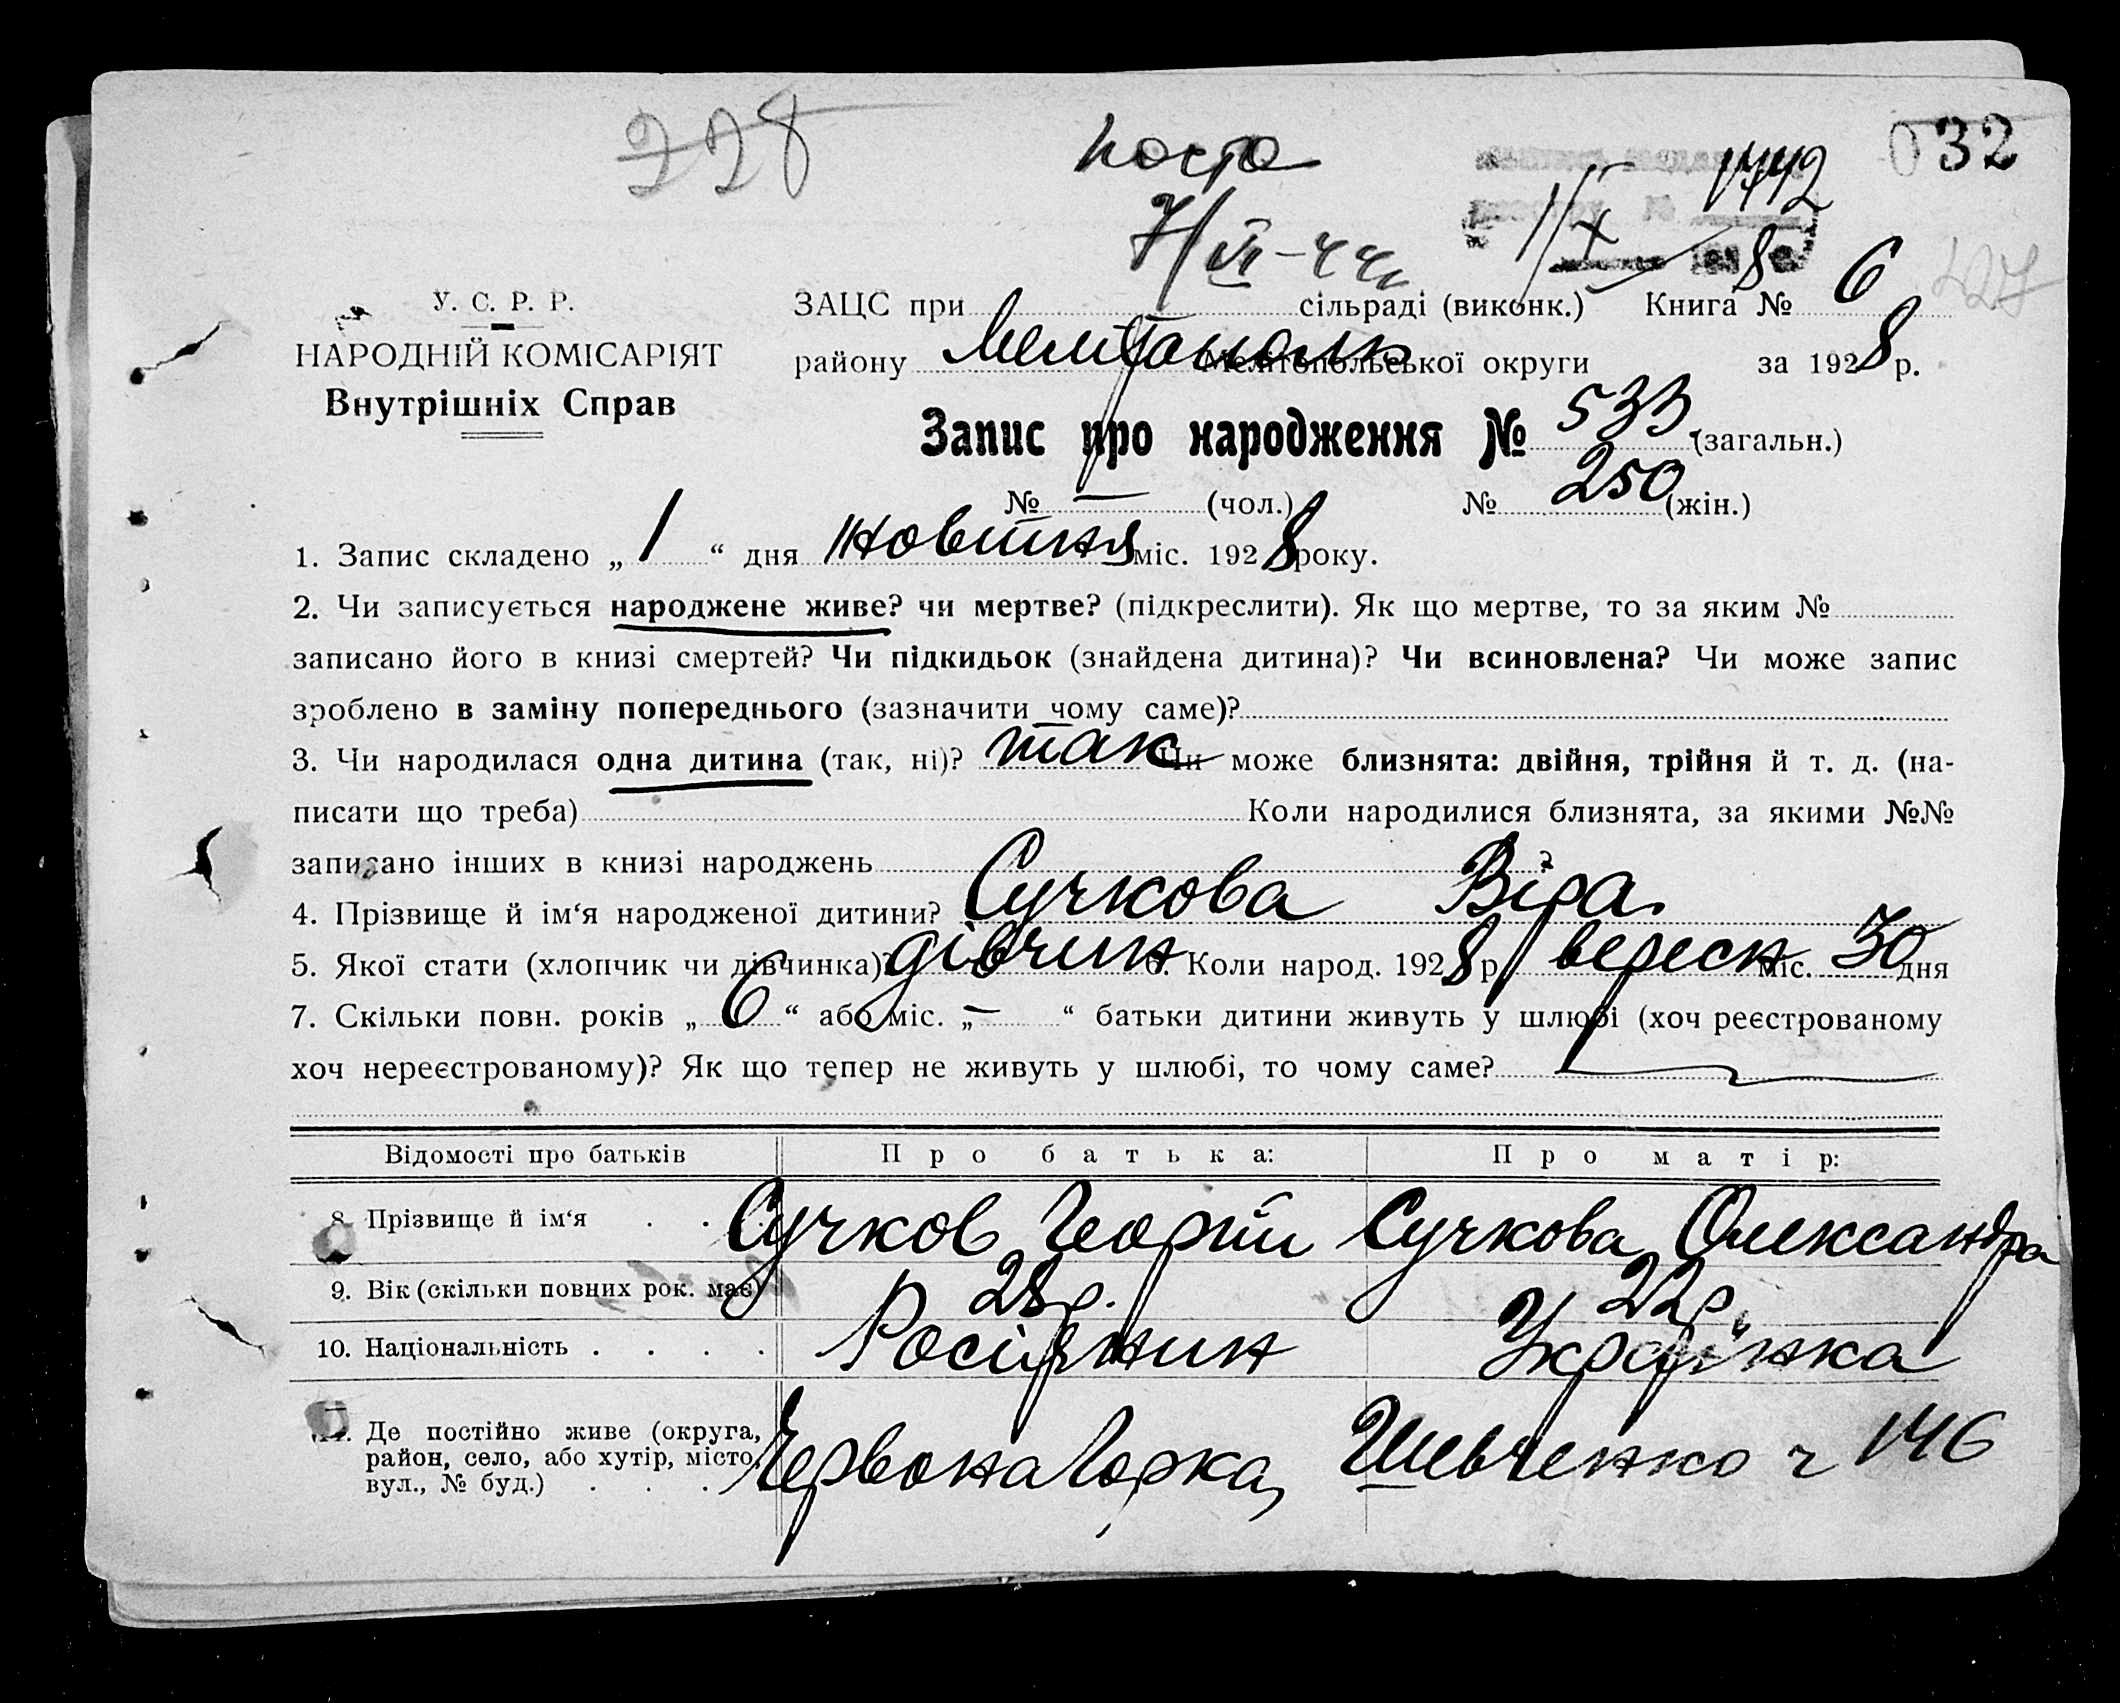 228
032
1442
7/VI-44
1/X
8
У. С. Р. Р.
НАРОДНІЙ КОМІСАРІЯТ
Внутрішніх Справ
ЗАЦС при сільраді (виконк.) Книга № 6
227
району Мелітополь Мелітопольської округи за 1928 р.
Запис про народження № 533 (загальн.)
№ — (чол.) № 250 (жін.)
1. Запис складено „ 1 “ дня жовтня міс. 1928 року.
2. Чи записується народжене живе? чи мертве? (підкреслити). Як що мертве, то за яким №
записано його в книзі смертей? Чи підкидьок (знайдена дитина)? Чи всиновлена? Чи може запис
зроблено в заміну попереднього (зазначити чому саме)?
3. Чи народилася одна дитина (так, ні)? так Чи може близнята: двійня, трійня й т. д. (на-
писати що треба) Коли народилися близнята, за якими №№
записано інших в книзі народжень ?
4. Прізвище й ім‘я народженої дитини? Сучкова Віра
5. Якої стати (хлопчик чи дівчинка)? дівчин 6. Коли народ. 1928 р. вересн міс. 30 дня
7. Скільки повн. років „ 6 “ або міс. „ — “ батьки дитини живуть у шлюбі (хоч реєстрованому
хоч нереєстрованому)? Як що тепер не живуть у шлюбі, то чому саме?
Відомості про батьків Про батька: Про матір:
8. Прізвище й ім‘я . . Сучков Георгій Сучкова Олександра
9. Вік (скільки повних рок. має) 28 р. 22 р.
10. Національність . . . . Росіянин Українка
11. Де постійно живе (округа,
район, село, або хутір, місто,
вул., № буд.) . . . Червона Горка, Шевченко ч 146